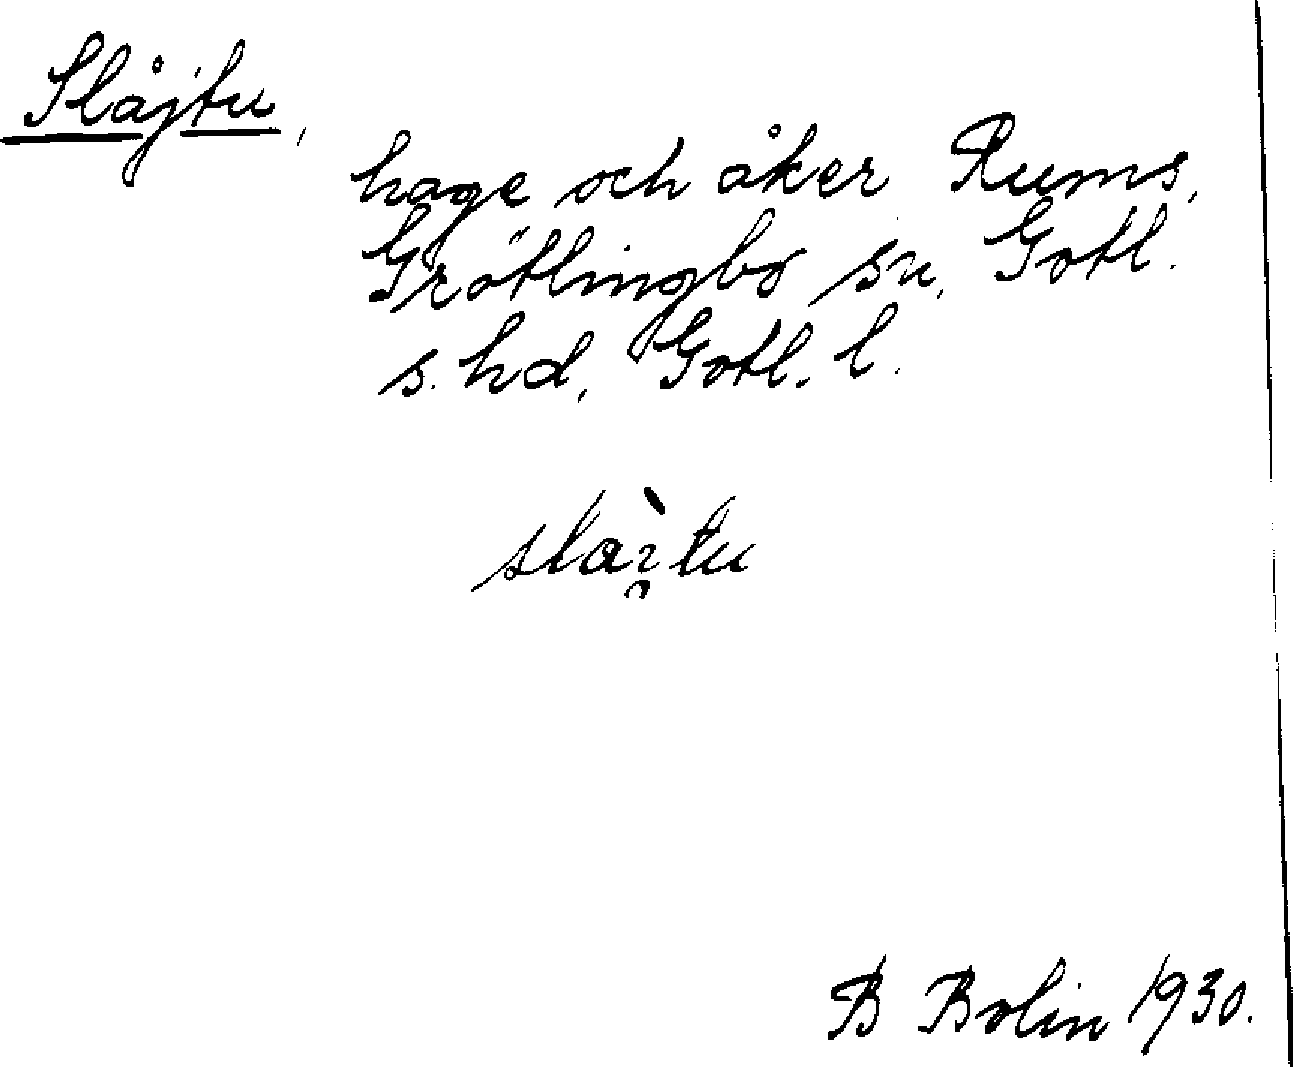 Slåjtu,
hage och åker Rums,
Grötlingbo sn, Gotl.
s. hd, Gotl. l.
B Bolin 1930.